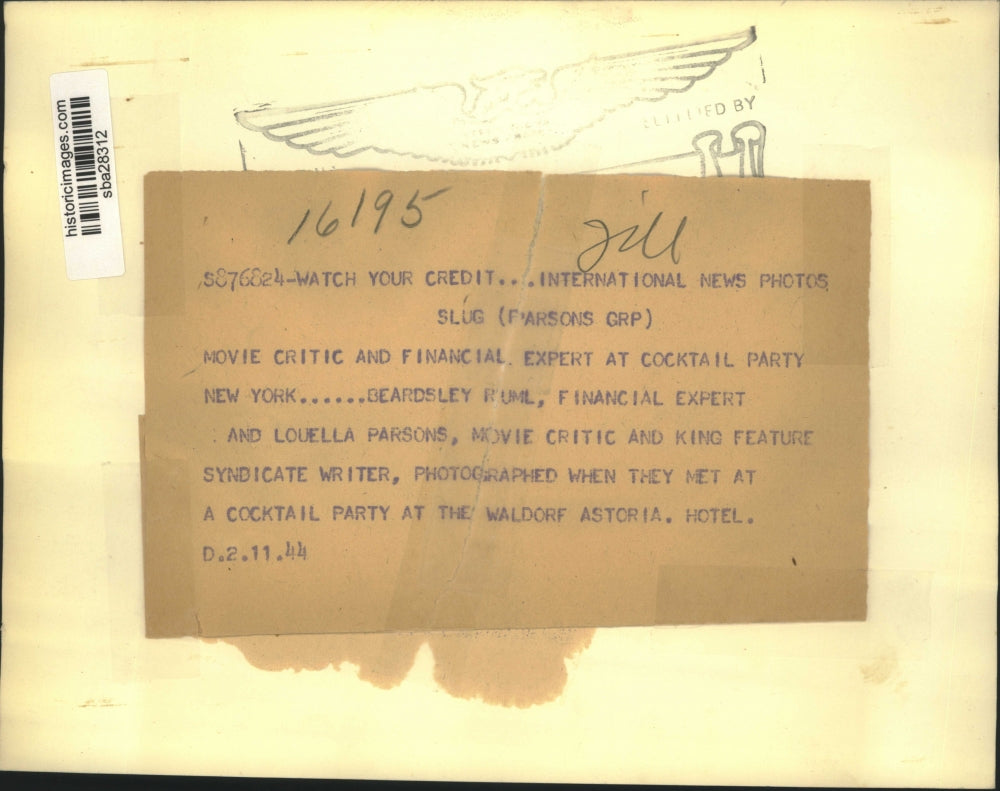 historicimages.com
sba28312
BY
16195
Jill
S876824-WATCH YOUR CREDIT...INTERNATIONAL NEWS PHOTOS
SLUG (PARSONS GRP)
MOVIE CRITIC AND FINANCIAL. EXPERT AT COCKTAIL PARTY
NEW YORK......BEARDSLEY RUML, FINANCIAL EXPERT
AND LOUELLA PARSONS, MOVIE CRITIC AND KING FEATURE
SYNDICATE WRITER, PHOTOGRAPHED WHEN THEY MET AT
A COCKTAIL PARTY AT THE WALDORF ASTORIA. HOTEL.
D.2.11.44